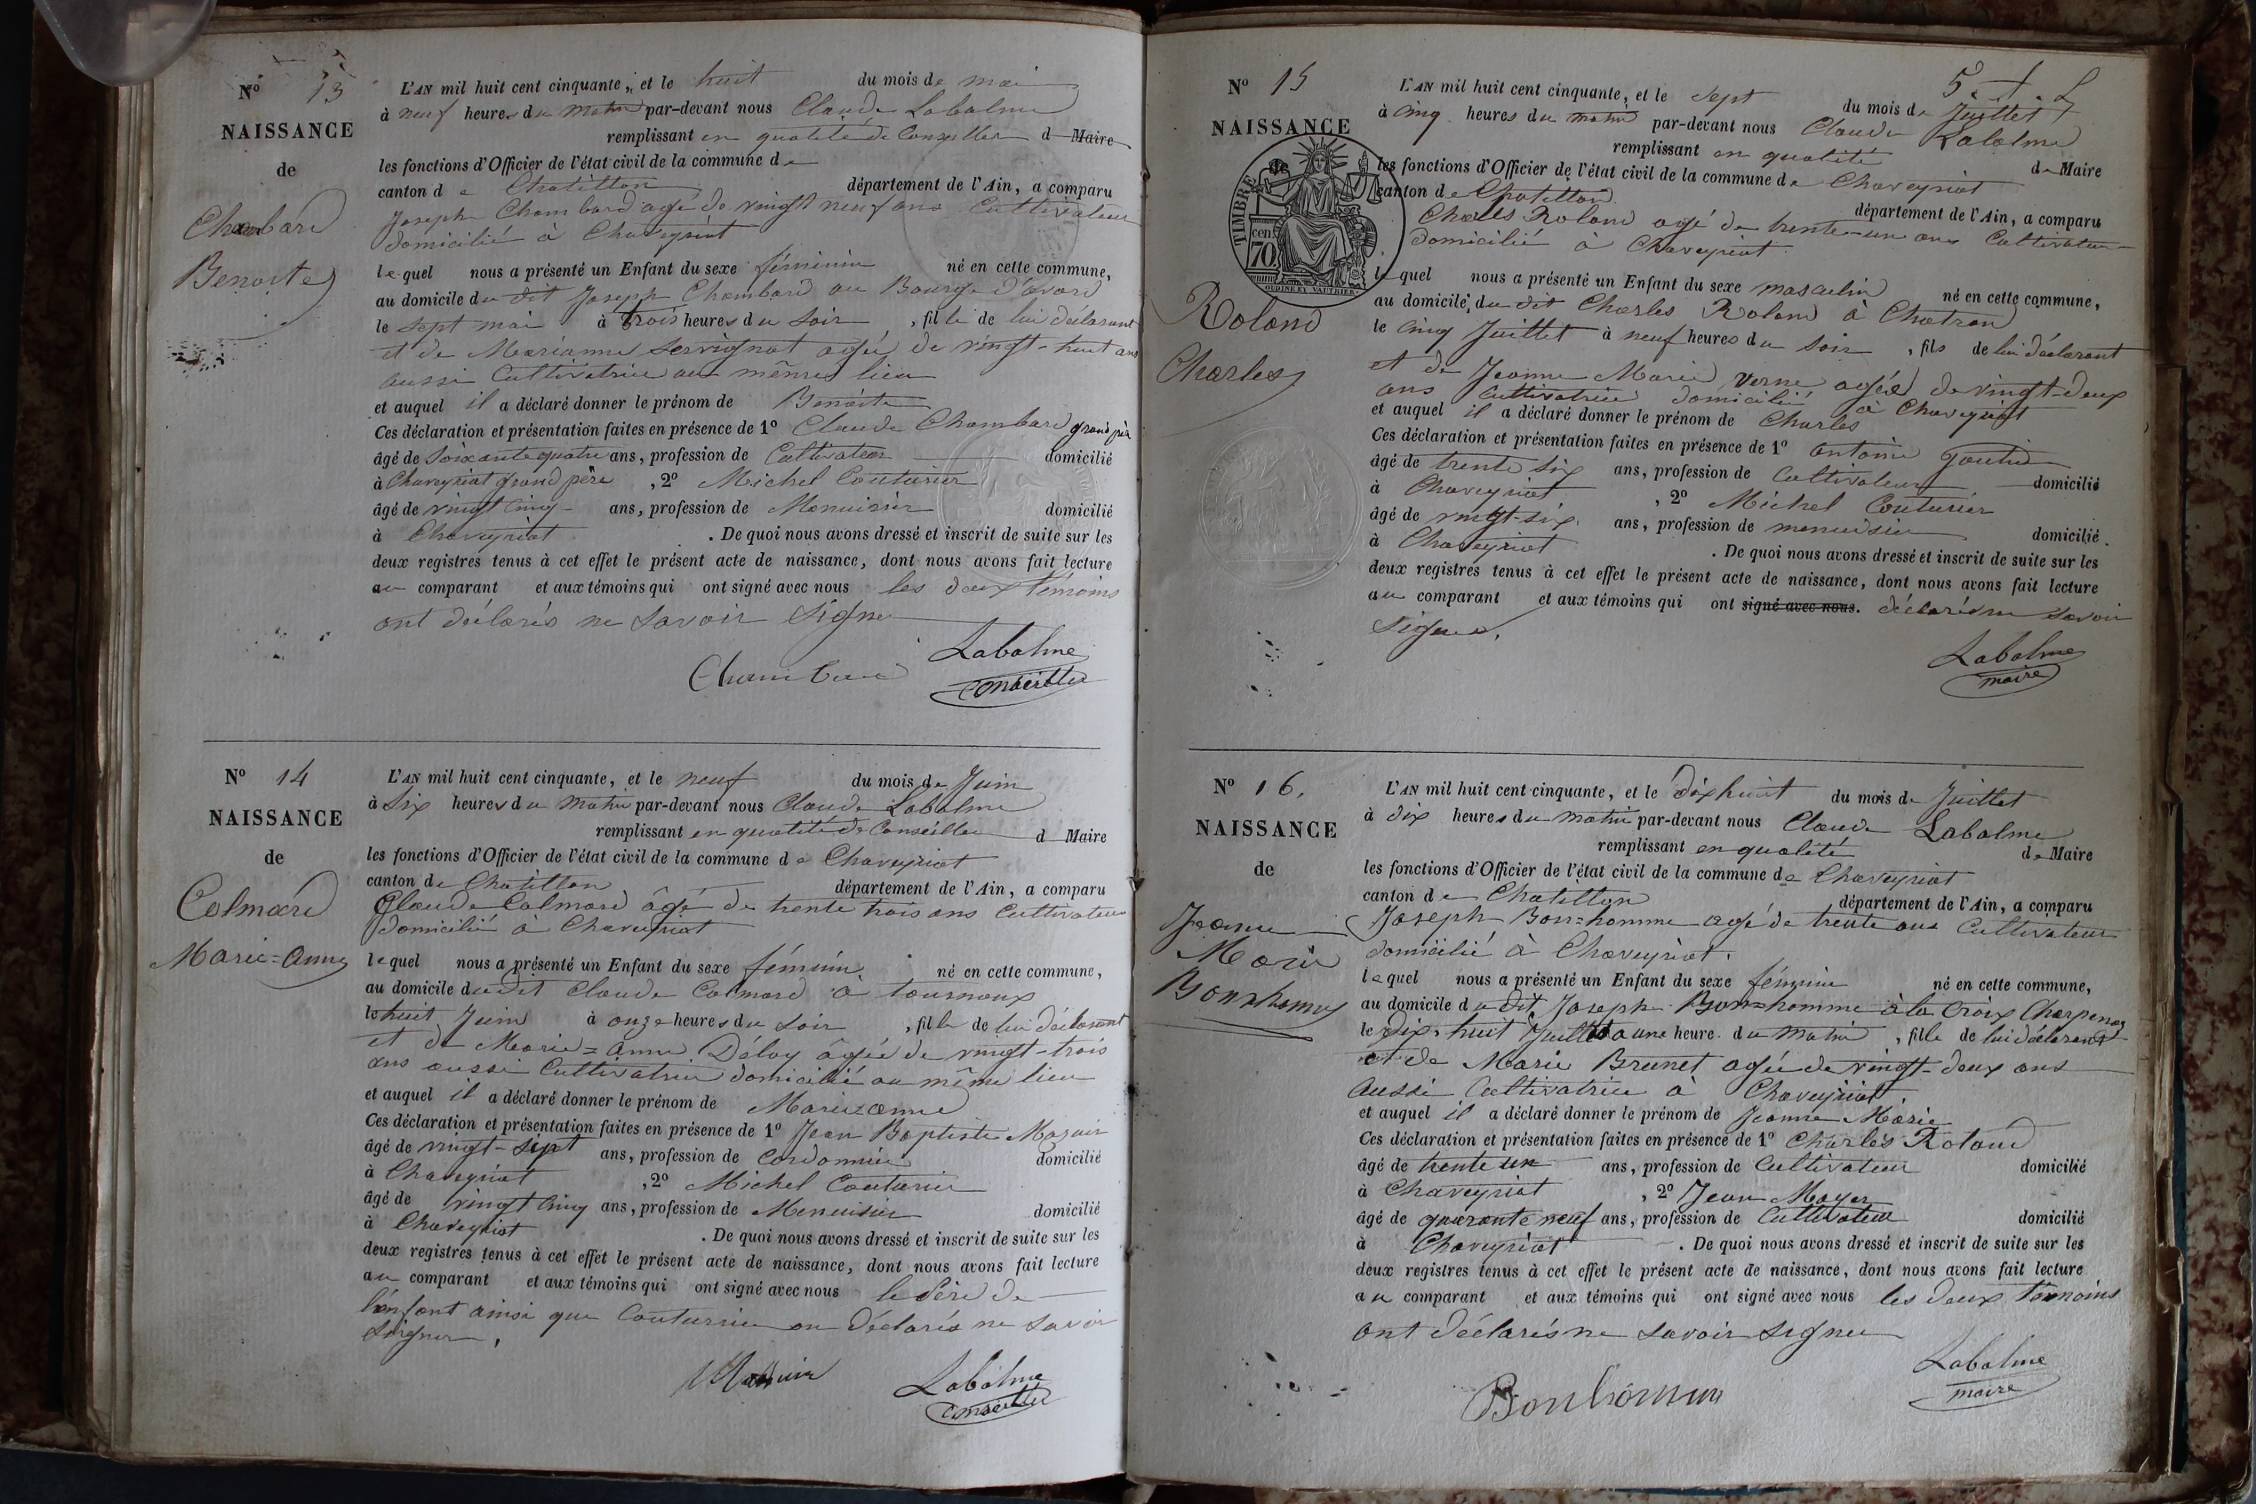 N° 13
NAISSANCE
de
Chambard
Benoite
L'AN mil huit cent cinquante, et le huit du mois de mai
à neuf heures du matin par-devant nous Claude Labalme
remplissant en qualité de Conseiller d Maire
les fonctions d'Officier de l'état civil de la commune de
canton de Chatillon département de l'Ain, a comparu
Joseph Chambard agé de vingt neuf ans Cultivateur
domicilié à Chaveyriat
lequel nous a présenté un Enfant du sexe féminin né en cette commune,
au domicile du dit Joseph Chambard au Bourge d'avard
le sept mai à trois heures du soir, fille de lui déclarant
et de Marianne Servignat agée de vingt-huit ans
aussi Cultivatrice au même lieu
et auquel il a déclaré donner le prénom de Benoite
Ces déclaration et présentation faites en présence de 1° Claude Chambard grand père
âgé de soixante quatre ans, profession de Cultivateur domicilié
à Chaveyriat grand père, 2° Michel Couturier
âgé de vingt cinq ans, profession de Menuisier domicilié
à Chaveyriat. De quoi nous avons dressé et inscrit de suite sur les
deux registres tenus à cet effet le présent acte de naissance, dont nous avons fait lecture
au comparant et aux témoins qui ont signé avec nous les deux témoins
ont déclarés ne savoir signer
Labalme
Chambard conseiller
N° 14
NAISSANCE
de
Colmard
Marie=Anne
L'AN mil huit cent cinquante, et le neuf du mois de Juin
à six heures du matin par-devant nous Claude Labalme
remplissant en qualité de Conseiller d Maire
les fonctions d'Officier de l'état civil de la commune de Chaveyriat
canton de Chatillon département de l'Ain, a comparu
Claude Colmard âgé de trente trois ans Cultivateur
domicilié à Chaveyriat
lequel nous a présenté un Enfant du sexe féminin né en cette commune,
au domicile dudit Claude Colmard à tournoux
le huit Juin à onze heures du soir, fille de lui déclarant
et de Marie=anne Déloy âgée de vingt-trois
ans aussi Cultivatrice domicilié au même lieu
et auquel il a déclaré donner le prénom de Marie=anne
Ces déclaration et présentation faites en présence de 1° Jean Baptiste Mazuir
âgé de vingt-sept ans, profession de Cordonnier domicilié
à Chaveyriat, 2° Michel Couturier
âgé de vingt cinq ans, profession de Menuisier domicilié
à Chaveyriat. De quoi nous avons dressé et inscrit de suite sur les
deux registres tenus à cet effet le présent acte de naissance, dont nous avons fait lecture
au comparant et aux témoins qui ont signé avec nous le Père de
l'enfant ainsi que Couturier on déclarés ne savoir
soigner.
Labalme
conseiller
N° 15
NAISSANCE
de
TIMBRE
cen
70
OUDINE ET VAUTHIER
Roland
Charles
L'AN mil huit cent cinquante, et le sept du mois de Juillet
à cinq heures du matin par-devant nous Claude Labalme
remplissant en qualité de Maire
les fonctions d'Officier de l'état civil de la commune de Chaveyriat
canton de Chatillon département de l'Ain, a comparu
Charles Roland agé de trente-un ans Cultivateur
domicilié à Chaveyriat
lequel nous a présenté un Enfant du sexe masculin né en cette commune,
au domicile du dit Charles Roland à Chatran
le cinq Juillet à neuf heures du soir, fils de lui déclarant
et de Jeanne Marie Verne agée de vingt-deux
ans Cultivatrice domicilié à Chaveyriat
et auquel il a déclaré donner le prénom de Charles
Ces déclaration et présentation faites en présence de 1° antoine Goutier
âgé de trente six ans, profession de Cultivateur domicilié
à Chaveyriat, 2° Michel Couturier
âgé de vingt-six ans, profession de menuisier domicilié
à Chaveyriat. De quoi nous avons dressé et inscrit de suite sur les
deux registres tenus à cet effet le présent acte de naissance, dont nous avons fait lecture
au comparant et aux témoins qui ont signé avec nous. déclaré ne savoir
signer.
Labalme
maire
N° 16.
NAISSANCE
de
Jeanne
Marie
Bon=homme
L'AN mil huit cent cinquante, et le dix huit du mois de Juillet
à dix heures du matin par-devant nous Claude Labalme
remplissant en qualité de Maire
les fonctions d'Officier de l'état civil de la commune de Chaveyriat
canton de Chatillon département de l'Ain, a comparu
Joseph Bon=homme agé de trente ans Cultivateur
domicilié à Chaveyriat.
lequel nous a présenté un Enfant du sexe féminin né en cette commune,
au domicile du dit Joseph Bon=homme à la Croix Charpenay
le dix-huit Juillet à une heure du matin, fille de lui déclarant
et de Marie Brunet agée de vingt-deux ans
aussi Cultivatrice à Chaveyriat
et auquel il a déclaré donner le prénom de Jeanne Marie
Ces déclaration et présentation faites en présence de 1° Charles Roland
âgé de trente un ans, profession de Cultivateur domicilié
à Chaveyriat, 2° Jean Moyer
âgé de quarante neuf ans, profession de Cultivateur domicilié
à Chaveyriat. De quoi nous avons dressé et inscrit de suite sur les
deux registres tenus à cet effet le présent acte de naissance, dont nous avons fait lecture
au comparant et aux témoins qui ont signé avec nous les deux témoins
ont déclarés ne savoir signer
Labalme
Bonhomme maire